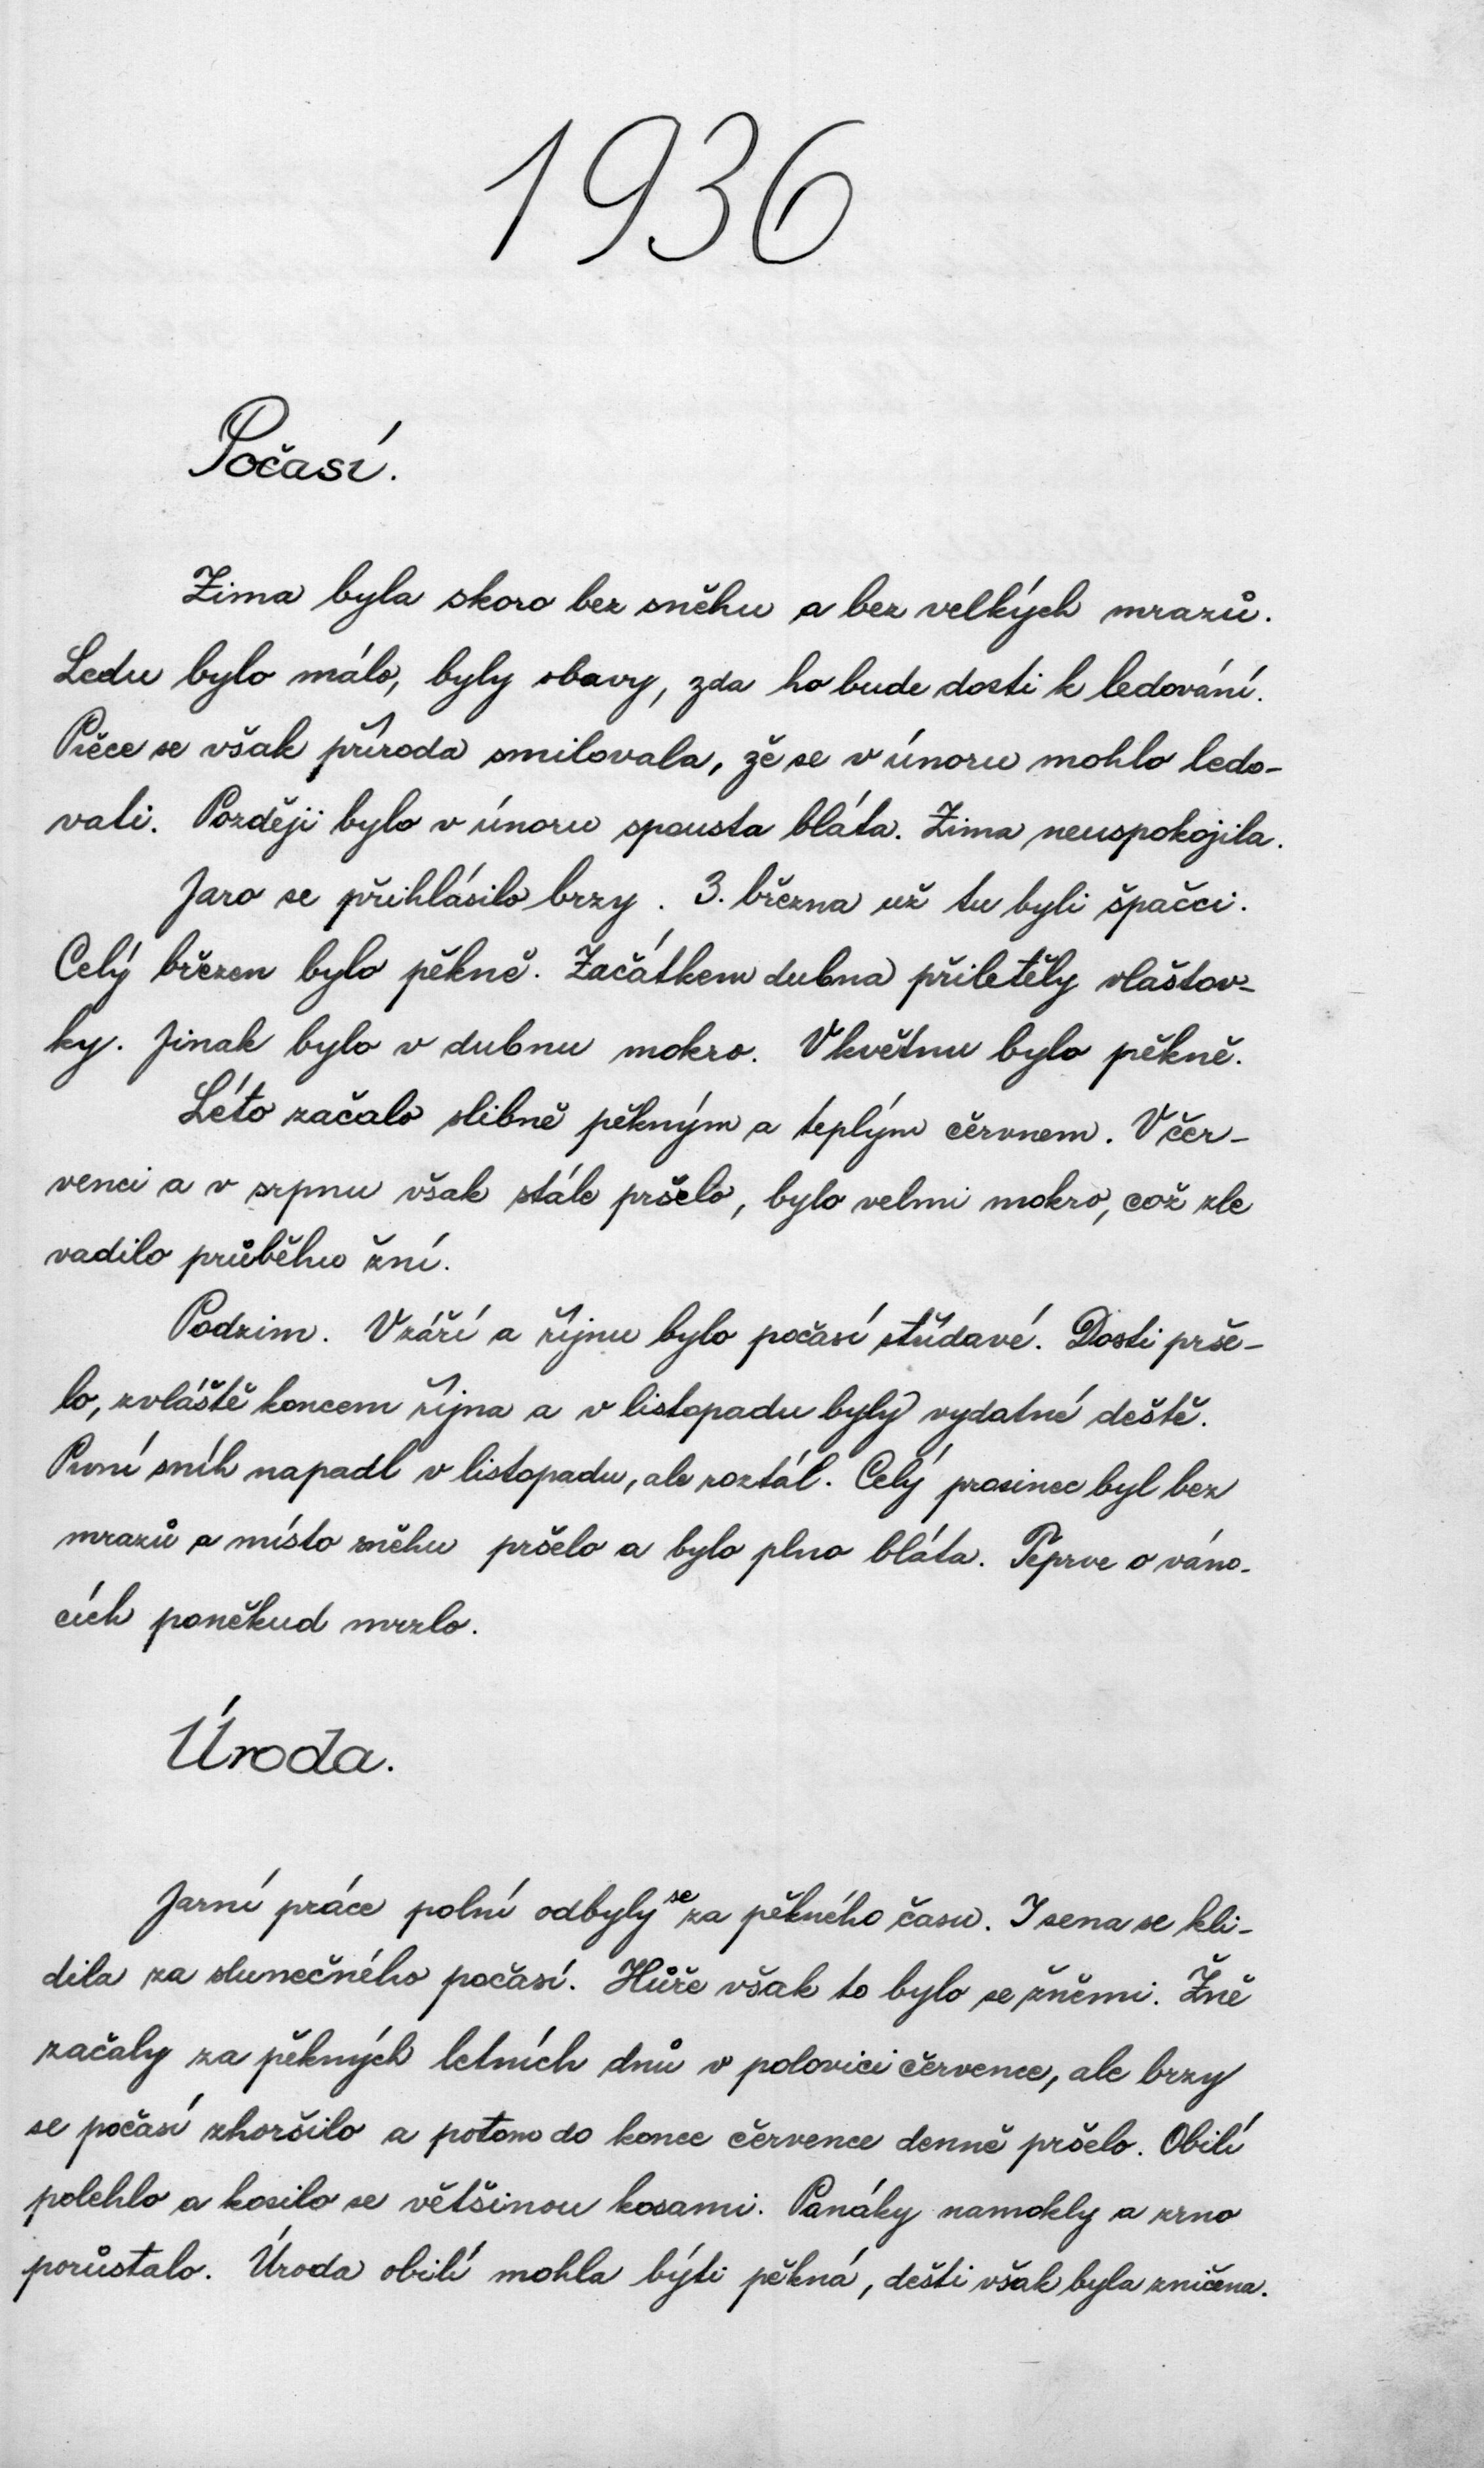 1936
Počasí.
Zima byla skoro bez sněhu a bez velkých mrazů.
Ledu bylo málo, byly obavy, zda ho bude dosti k ledování.
Přece se však příroda smilovala, že se v únoru mohlo ledo-
vati. Později bylo v únoru spousta bláta. Zima neuspokojila.
Jaro se přihlásilo brzy. 3. března už tu byli špačci.
Celý březen bylo pěkně. Začátkem dubna přiletěly vlaštov-
ky. Jinak bylo v dubnu mokro. V květnu bylo pěkně.
Léto začalo slibně pěkným a teplým červnem. V čer-
venci a v srpnu však stále pršelo, bylo velmi mokro, což zle
vadilo průběhu žní.
Podzim. V září a říjnu bylo počasí střídavé. Dosti prše-
lo, zvláště koncem října a v listopadu byly vydatné deště.
První sníh napadl v listopadu, ale roztál. Celý prosinec byl bez
mrazů a místo sněhu pršelo a bylo plno bláta. Teprve o váno-
cích poněkud mrzlo.
Úroda.
Jarní práce polní odbyly se za pěkného času. I sena se kli-
dila za slunečného počasí. Hůře však to bylo se žněmi. Žně
začaly za pěkných letních dnů v polovici července, ale brzy
se počasí zhoršilo a potom do konce července denně pršelo. Obilí
polehlo a kosilo se většinou kosami. Panáky namokly a zrno
porůstalo. Úroda obilí mohla býti pěkná, dešti však byla zničena.